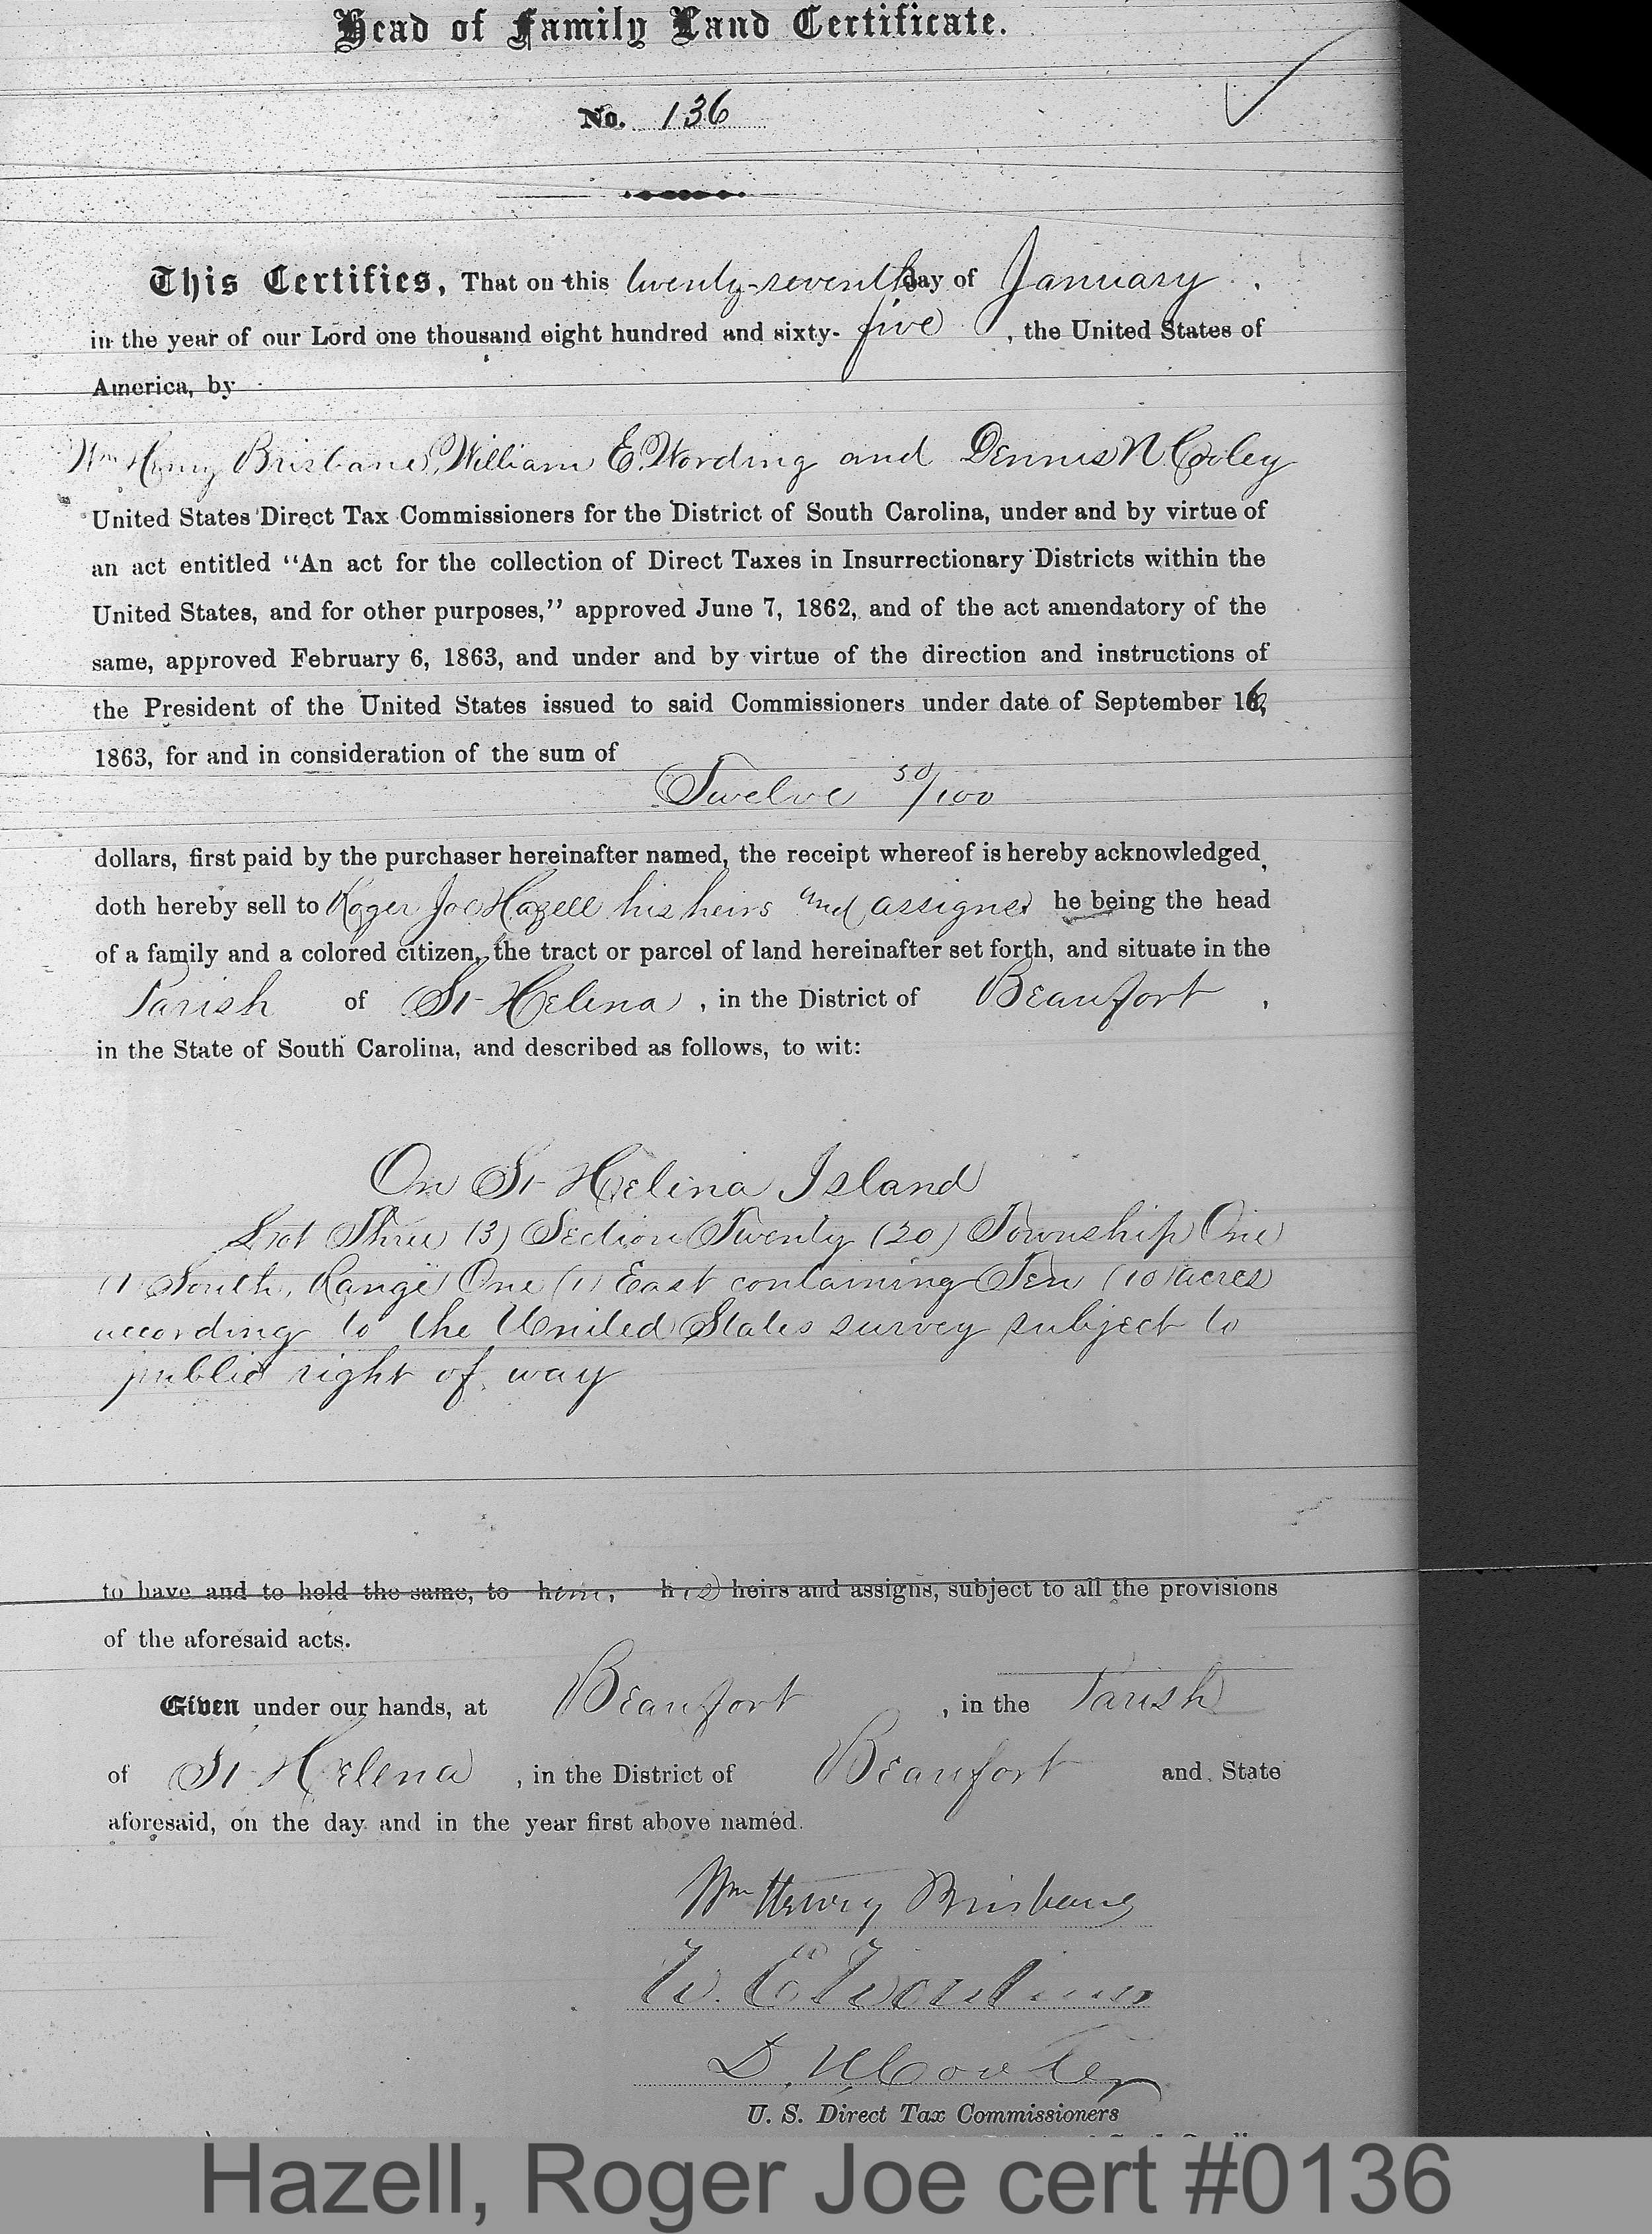 Head of Family Land Certificate.
No. 136
This Certifies, That on this twenty-seventh day of January,
in the year of our Lord one thousand eight hundred and sixty-five, the United States of
America, by
Wm Henry Brisbane, William E. Wording and Dennis N Cooley
United States Direct Tax Commissioners for the District of South Carolina, under and by virtue of
an act entitled "An act for the collection of Direct Taxes in Insurrectionary Districts within the
United States, and for other purposes," approved June 7, 1862, and of the act amendatory of the
same, approved February 6, 1863, and under and by virtue of the direction and instructions of
the President of the United States issued to said Commissioners under date of September 16,
1863, for and in consideration of the sum of
Twelve 50/100
dollars, first paid by the purchaser hereinafter named, the receipt whereof is hereby acknowledged,
doth hereby sell to Roger Joe Hazell his heirs and assigns he being the head
of a family and a colored citizen, the tract or parcel of land hereinafter set forth, and situate in the
Parish of St Helena, in the District of Beaufort,
in the State of South Carolina, and described as follows, to wit:
On St Helena Island
Lot Three (3) Section Twenty (20) Township One
(1) South, Range One (1) East containing Ten (10) acres
according to the United States survey subject to
public right of way
to have and to hold the same, to him, his heirs and assigns, subject to all the provisions
of the aforesaid acts.
Given under our hands, at Beaufort, in the Parish
of St Helena, in the District of Beaufort and State
aforesaid, on the day and in the year first above named.
Wm Henry Brisbane
W. E. Wording
D. N. Cooley
U. S. Direct Tax Commissioners
Hazell, Roger Joe cert #0136